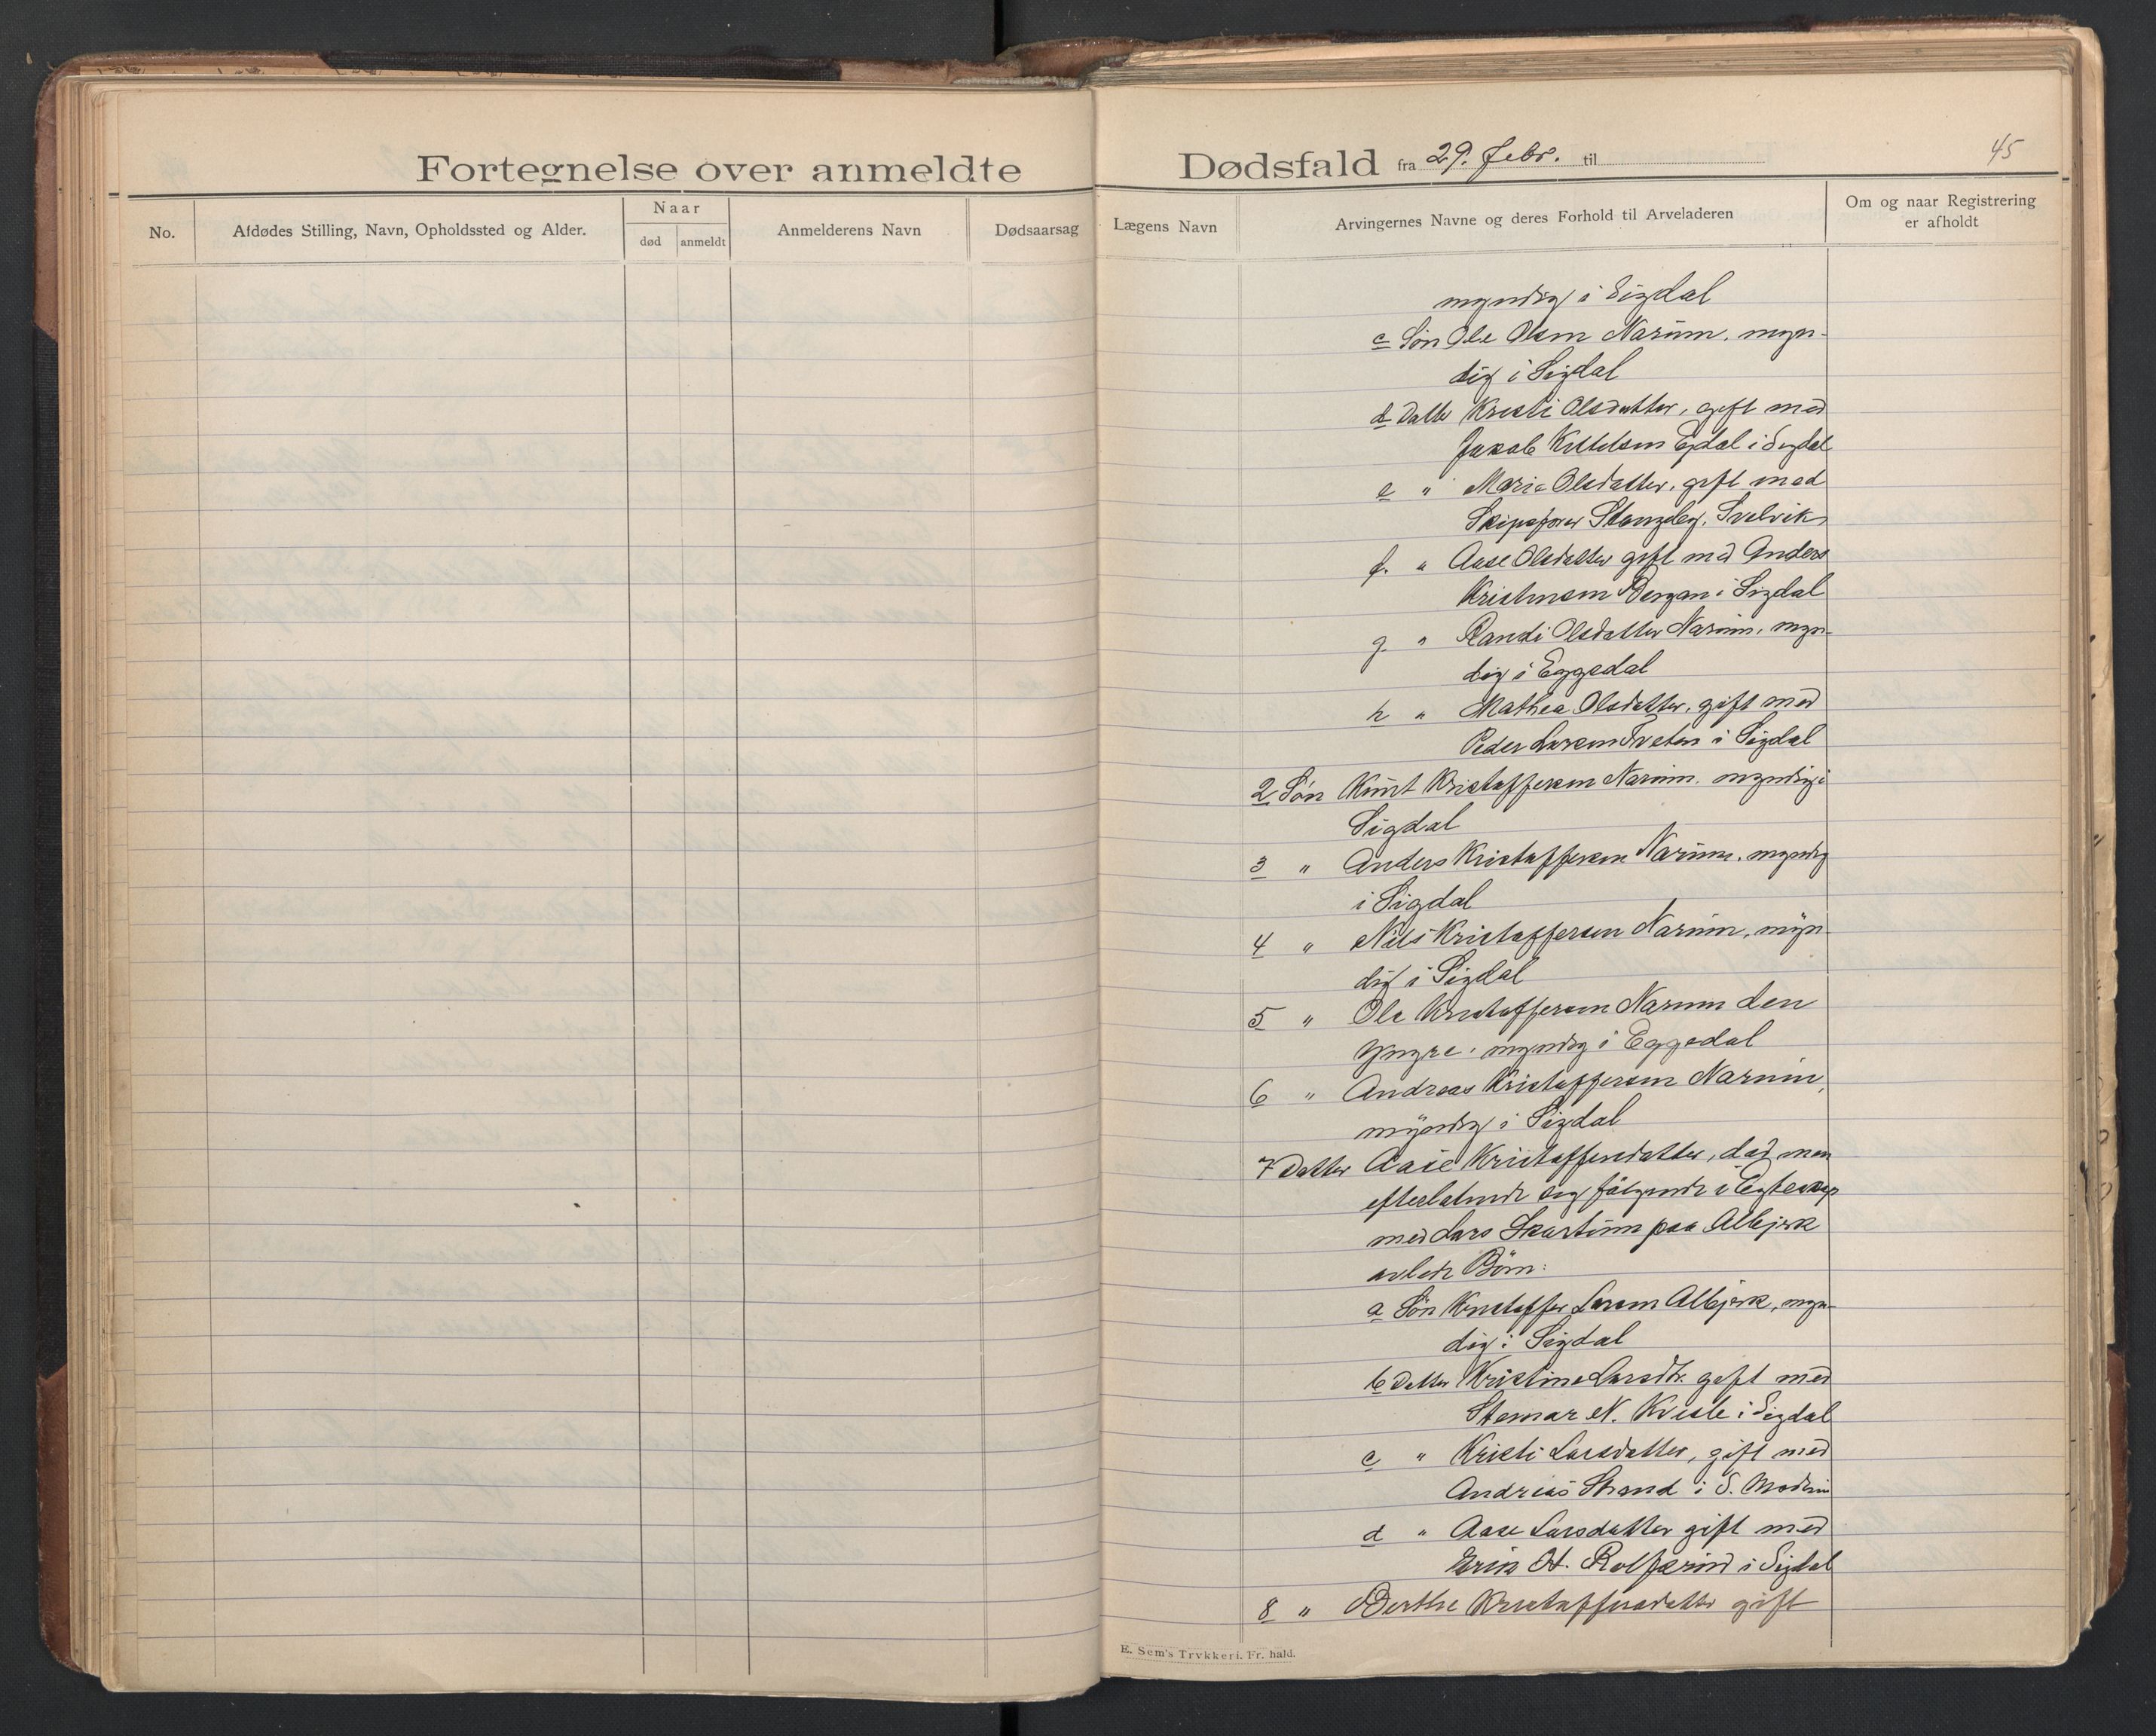 Fortegnelse over anmeldte
Dødsfald fra 29. febr. til
45
No.
Afdødes Stilling, Navn, Opholdssted og Alder.
Naar
død
anmeldt
Anmelderens Navn
Dødsaarsag
Lægens Navn
Arvingernes Navne og deres Forhold til Arveladeren
Om og naar Registrering
er afholdt
myndig i Sigdal
c Søn Ole Olsen Narum, myn-
dig i Sigdal
d Datter Kristi Olsdatter, gift med
Jakob Kittelsen Egdal i Sigdal
e " Marie Olsdatter, gift med
Skipsfører Stangeby, Svelvik
f. " Aase Olsdatter gift med Anders
Kristensen Bergan i Sigdal
g " Randi Olsdatter Narum, myn-
dig i Eggedal
h " Mathea Olsdatter, gift med
Peder Larsen Tveten i Sigdal
2 Søn Knut Kristoffersen Narum, myndig i
Sigdal
3 " Anders Kristoffersen Narum, myndig
i Sigdal
4 " Nils Kristoffersen Narum, myn-
dig i Sigdal
5 " Ole Kristoffersen Narum den
yngre, myndig i Eggedal
6 " Andreas Kristoffersen Narum,
myndig i Sigdal
7 Datter Aase Kristoffersdatter, død men
efterlatende sig følgende i Egteskap
med Lars Skartum paa Albjerk
avlede Børn:
a Søn Kristoffer Larsen Albjerk, myn-
dig i Sigdal
b Datter Kristine Larsdtr. gift med
Stemar N. Kvisle i Sigdal
c " Kristi Larsdatter, gift med
Andreas Strand i S. Modum
d " Aase Larsdatter gift med
Erik H. Rolfserud i Sigdal
8 " Berthe Kristoffersdatter gift
E. Sem's Trykkeri. Fr. hald.